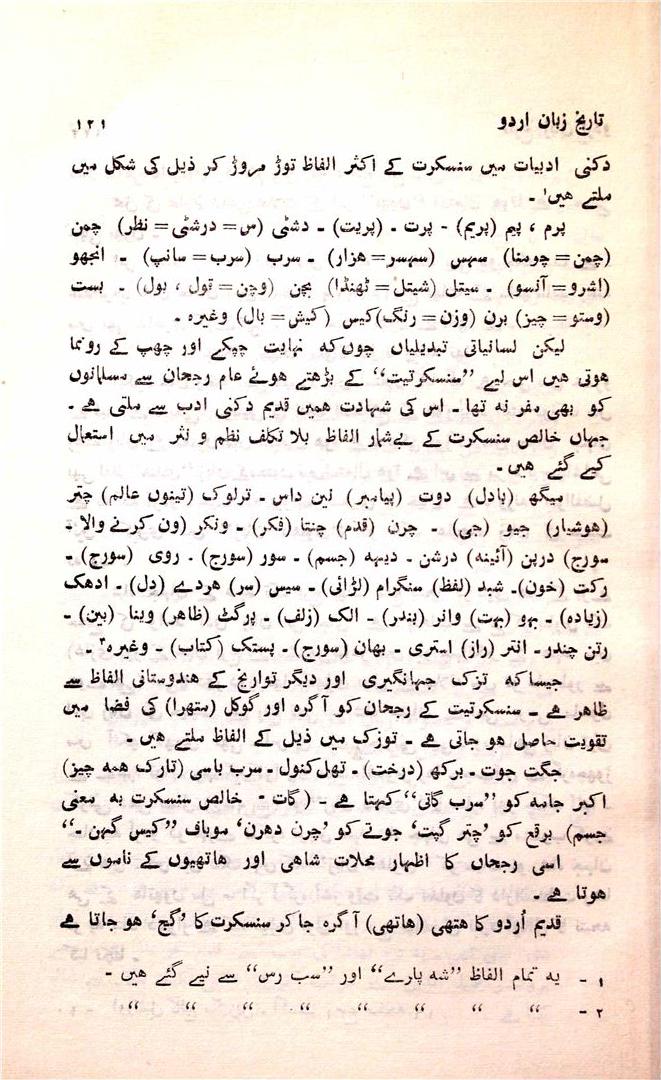 تاریخ زبان اردو ۱۲۱
دکنی ادبیات میں سنسکرت کے اکثر الفاظ توڑ مروڑ کر ذیل کی شکل میں
ملتے ہیں¹ ۔
پرم ، پیم (پریم) - پرت ۔ (پریت) ۔ دشٹی (س= درشٹی= نظر) چمن
(چمن= چومنا) سہس (سہسر= ہزار) ۔ سرب (سرب= سانپ) ۔ انجھو
(اشرو= آنسو) ۔ سیتل (شیتل= ٹھنڈا) بچن (وچن= قول ، بول) ۔ بست
(وستو= چیز) برن (وزن= رنگ)کیس (کیش= بال) وغیرہ ۔
لیکن لسانیاتی تبدیلیاں چوں‌کہ نہایت چپکے اور چھپ کے رونما
ہوتی ہیں اس لیے ”سنسکرتیت“ کے بڑھتے ہوئے عام رجحان سے مسلمانوں
کو بھی مفر نہ تھا ۔ اس کی شہادت ہمیں قدیم دکنی ادب سے ملتی ہے ۔
جہاں خالص سنسکرت کے بے‌شمار الفاظ بلا تکلف نظم و نثر میں استعمال
کیے گئے ہیں ۔
میگھ (بادل) دوت (پیامبر) نین داس ۔ ترلوک (تینوں عالم) چتر
(ہوشیار) جیو (جی) ۔ چرن (قدم) چنتا (فکر) ۔ ونکر (ون کرنے والا ۔
سورج) درپن (آئینہ) درشن ۔ دیہہ (جسم) ۔ سور (سورج) ۔ روی (سورج) ۔
رکت (خون)۔ شبد (لفظ) سنگرام (لڑائی) ۔ سیس (سر) ہردے (دل) ۔ ادھک
(زیادہ) ۔ بہو (بہت) وانر (بندر) ۔ الک (زلف) ۔ پرگٹ (ظاہر) وینا (بین) ۔
رتن چندر ۔ انتر (راز) استری ۔ بھان (سورج) ۔ پستک (کتاب) ۔ وغیرہ² ۔
جیسا کہ تزک جہانگیری اور دیگر تواریخ کے ہندوستانی الفاظ سے
ظاہر ہے ۔ سنسکرتیت کے رجحان کو آگرہ اور گوکل (متھرا) کی فضا میں
تقویت حاصل ہو جاتی ہے ۔ توزک میں ذیل کے الفاظ ملتے ہیں ۔
جگت جوت ۔ برکھ (درخت) ۔ تھل‌کنول ۔ سرب باسی (تارک ہمہ چیز)
اکبر جامہ کو ”سرب گاتی“ کہتا ہے - ( گات - خالص سنسکرت بہ معنی
جسم) برقع کو ’چتر گپت‘ جوتے کو ’چرن دھرن‘ موباف ”کیس گہن ۔“
اسی رجحاں کا اظہار محلات شاہی اور ہاتھیوں کے ناموں سے
ہوتا ہے ۔
قدیم اُردو کا ہتھی (ہاتھی) آگرہ جا کر سنسکرت کا ’گج‘ ہو جاتا ہے
۱ - یہ تمام الفاظ ”شہ پارے“ اور ”سب رس“ سے لیے گئے ہیں ۔
۲ - “ “ “ “ “ “ “ “